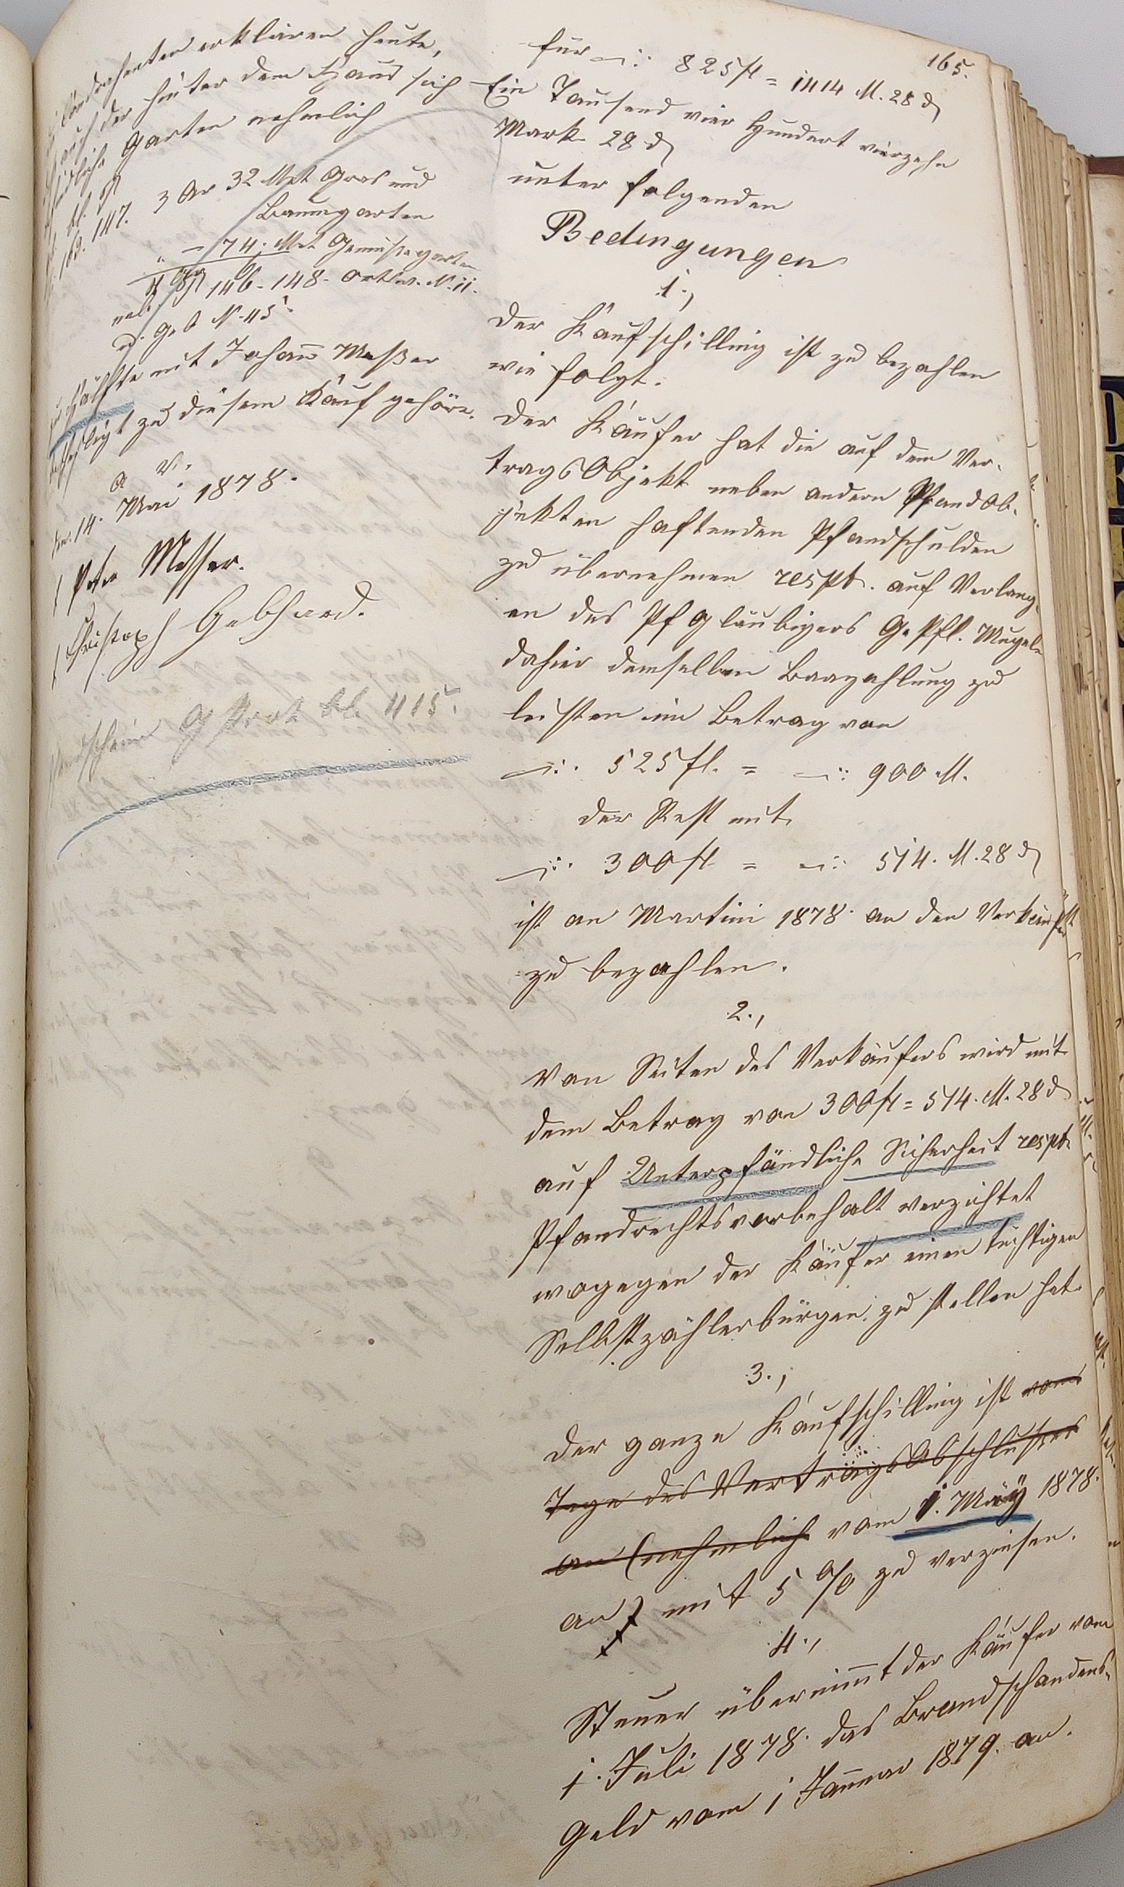 165.
erklären heute,
auch der hinter dem Haus sich
Garten nehmlich
3 Ar 32 Met Gras und
Baumgarten
" - 74. Met Gemüsegarten
146-148. Ortsw. N. 11.
G. B N. 115.
Hälfte mit Johann Messer
zu diesem Kauf gehöre.
a. v.
Den 14. Mai 1878.
t Peter Messer.
t Christoph Gebhard.
G Prot bl. 415.
für —:. 825 fl = 1414 M. 28 ₰
Ein Tausend vier Hundert vierzehn
Mark 28 ₰
unter folgenden
Bedingungen
1.,
Der Kaufschilling ist zu bezahlen
wie folgt.
Der Käufer hat die auf dem Ver-
tragsObjekt neben andern Pfandob-
jekten haftenden Pfandschulden
zu übernehmen respt. auf Verlang-
en des Pf Gläubigers G. Pfl.
dahier demselben Baarzahlung zu
leisten im Betrag von
—:. 525 fl. = —:. 900 M.
der Rest mit
—:. 300 fl = —:. 514. M. 28 ₰
ist an Martini 1878. an den Verkäufer
zu bezahlen.
2.,
Von Seiten des Verkäufers wird mit
dem Betrag von 300 fl = 514. M. 28 ₰
auf Unterpfändliche Sicherheit respt.
Pfandrechtsvorbehalt verzichtet
wogegen der Käufer einen tüchtigen
Selbstzahlerbürgen zu stellen hat.
3.,
Der ganze Kaufschilling ist vom
Tage des VertragsAbschlußes
an (nehmlich vom 1. May 1878.
an) mit 5 % zu verzinsen.
4.,
Steuer übernimmt der Käufer vom
1. Juli 1878. das Brandschadens-
Geld vom 1 Januar 1879. an.